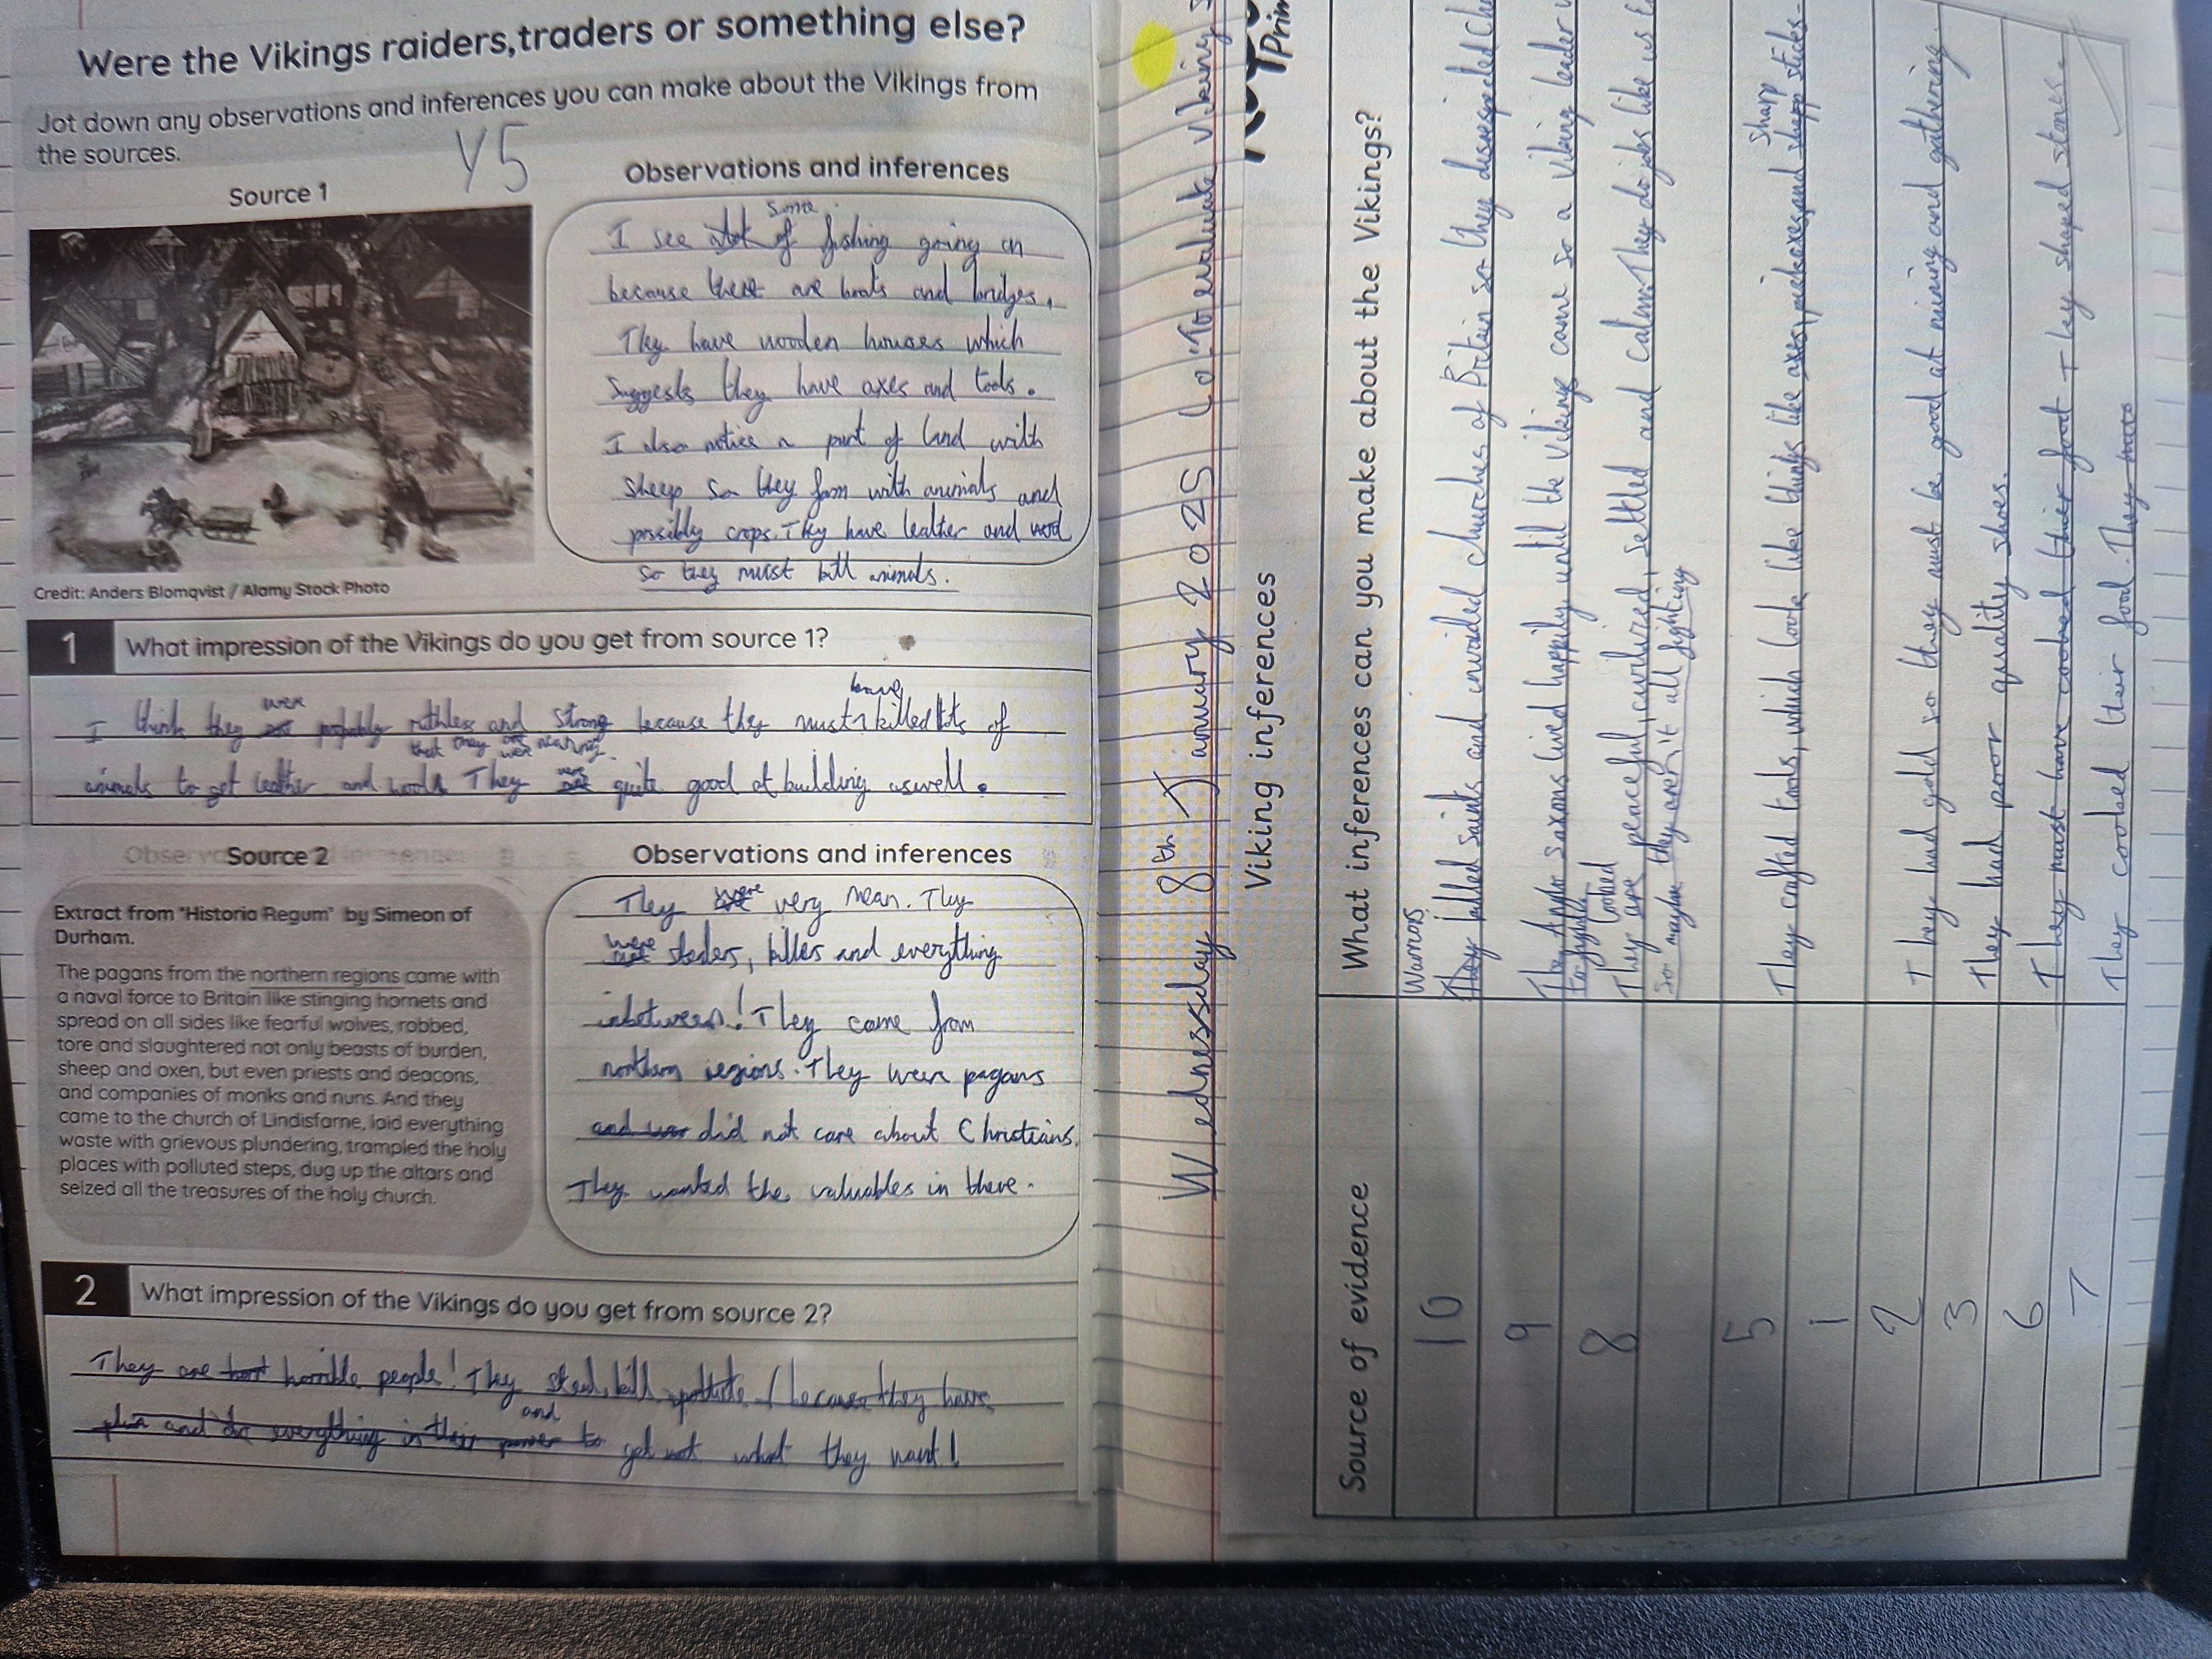 Were the Vikings raiders, traders or something else?
Jot down any observations and inferences you can make about the Vikings from
the sources.
Y5
Source 1
Credit: Anders Blomqvist / Alamy Stock Photo
Observations and inferences
some
I see of fishing going on
because there are boats and bridges.
They have wooden houses which
suggests they have axes and tools.
I also notice a part of land with
sheep so they farm with animals and
possibly crops. They have leather and wool
so they must kill animals.
1 What impression of the Vikings do you get from source 1?
were have
I think they probably ruthless and strong because they must killed lots of
that they were wearing.
animals to get leather and wool. They were quite good at building aswell.
Source 2
Extract from 'Historia Regum' by Simeon of
Durham.
The pagans from the northern regions came with
a naval force to Britain like stinging hornets and
spread on all sides like fearful wolves, robbed,
tore and slaughtered not only beasts of burden,
sheep and oxen, but even priests and deacons,
and companies of monks and nuns. And they
came to the church of Lindisfarne, laid everything
waste with grievous plundering, trampled the holy
places with polluted steps, dug up the altars and
seized all the treasures of the holy church.
Observations and inferences
They were very mean. They
were stealers, killers and everything
inbetween! They come from
northern regions. They were pagans
did not care about Christians.
They wanted the valuables in there.
2 What impression of the Vikings do you get from source 2?
They are horrible people! They steal, kill because they have
and
plan and do everything in their power to get what they want!
Wednesday 8th January 2025 Lo: To evaluate viking
Prim
Viking inferences
Source of evidence What inferences can you make about the Vikings?
Warriors
10 They killed saints and invaded churches of Britain so they disrespected
9 The Anglo saxons lived happily until the vikings came so a viking leader
to fight.
looked
8 They are peaceful, civilized, settled and calm. They do jobs like us
so maybe they aren't all fighting
sharp
5 They crafted tools, which look like things like axes, pickaxes and sharp sticks.
1
2 They had gold so they must be good at mining and gathering.
3 They had poor quality shoes.
6 They must have cooked thier food They shaped stones.
7 They cooked their food. They